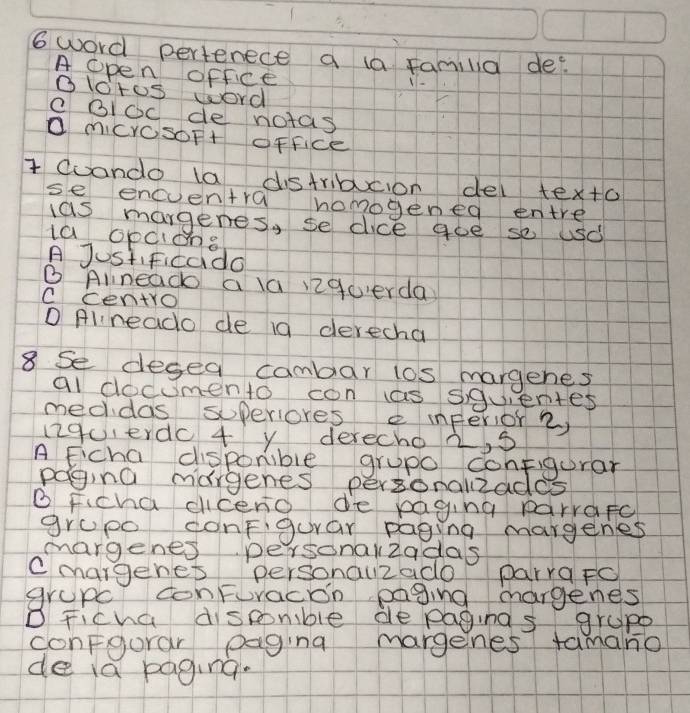 6 word pertenece a la familia de:
A open office
B lotus word
C Bloc de notas
D microsoft office
7 cuando la distribucion del texto
se encuentra homogenea entre
las margenes, se dice que se uso
la opcion:
A Justificado
B Alineado a la izquierda
C centro
D Alineado de la derecha
8 se desea cambar los margenes
al documento con las siguientes
medidas superiores e inferior 2,
izquierdo 4 y derecho 2,5
A Ficha disponible grupo configurar
pagina margenes personalizados
B Ficha diceño de pagina parrafo
grupo configurar pagina margenes
margenes personalizadas
C margenes personalizado parrafo
grupo confuracion pagina margenes
D Ficha disponible de paginas grupo
confgorar pagina margenes tamaño
de la pagina.